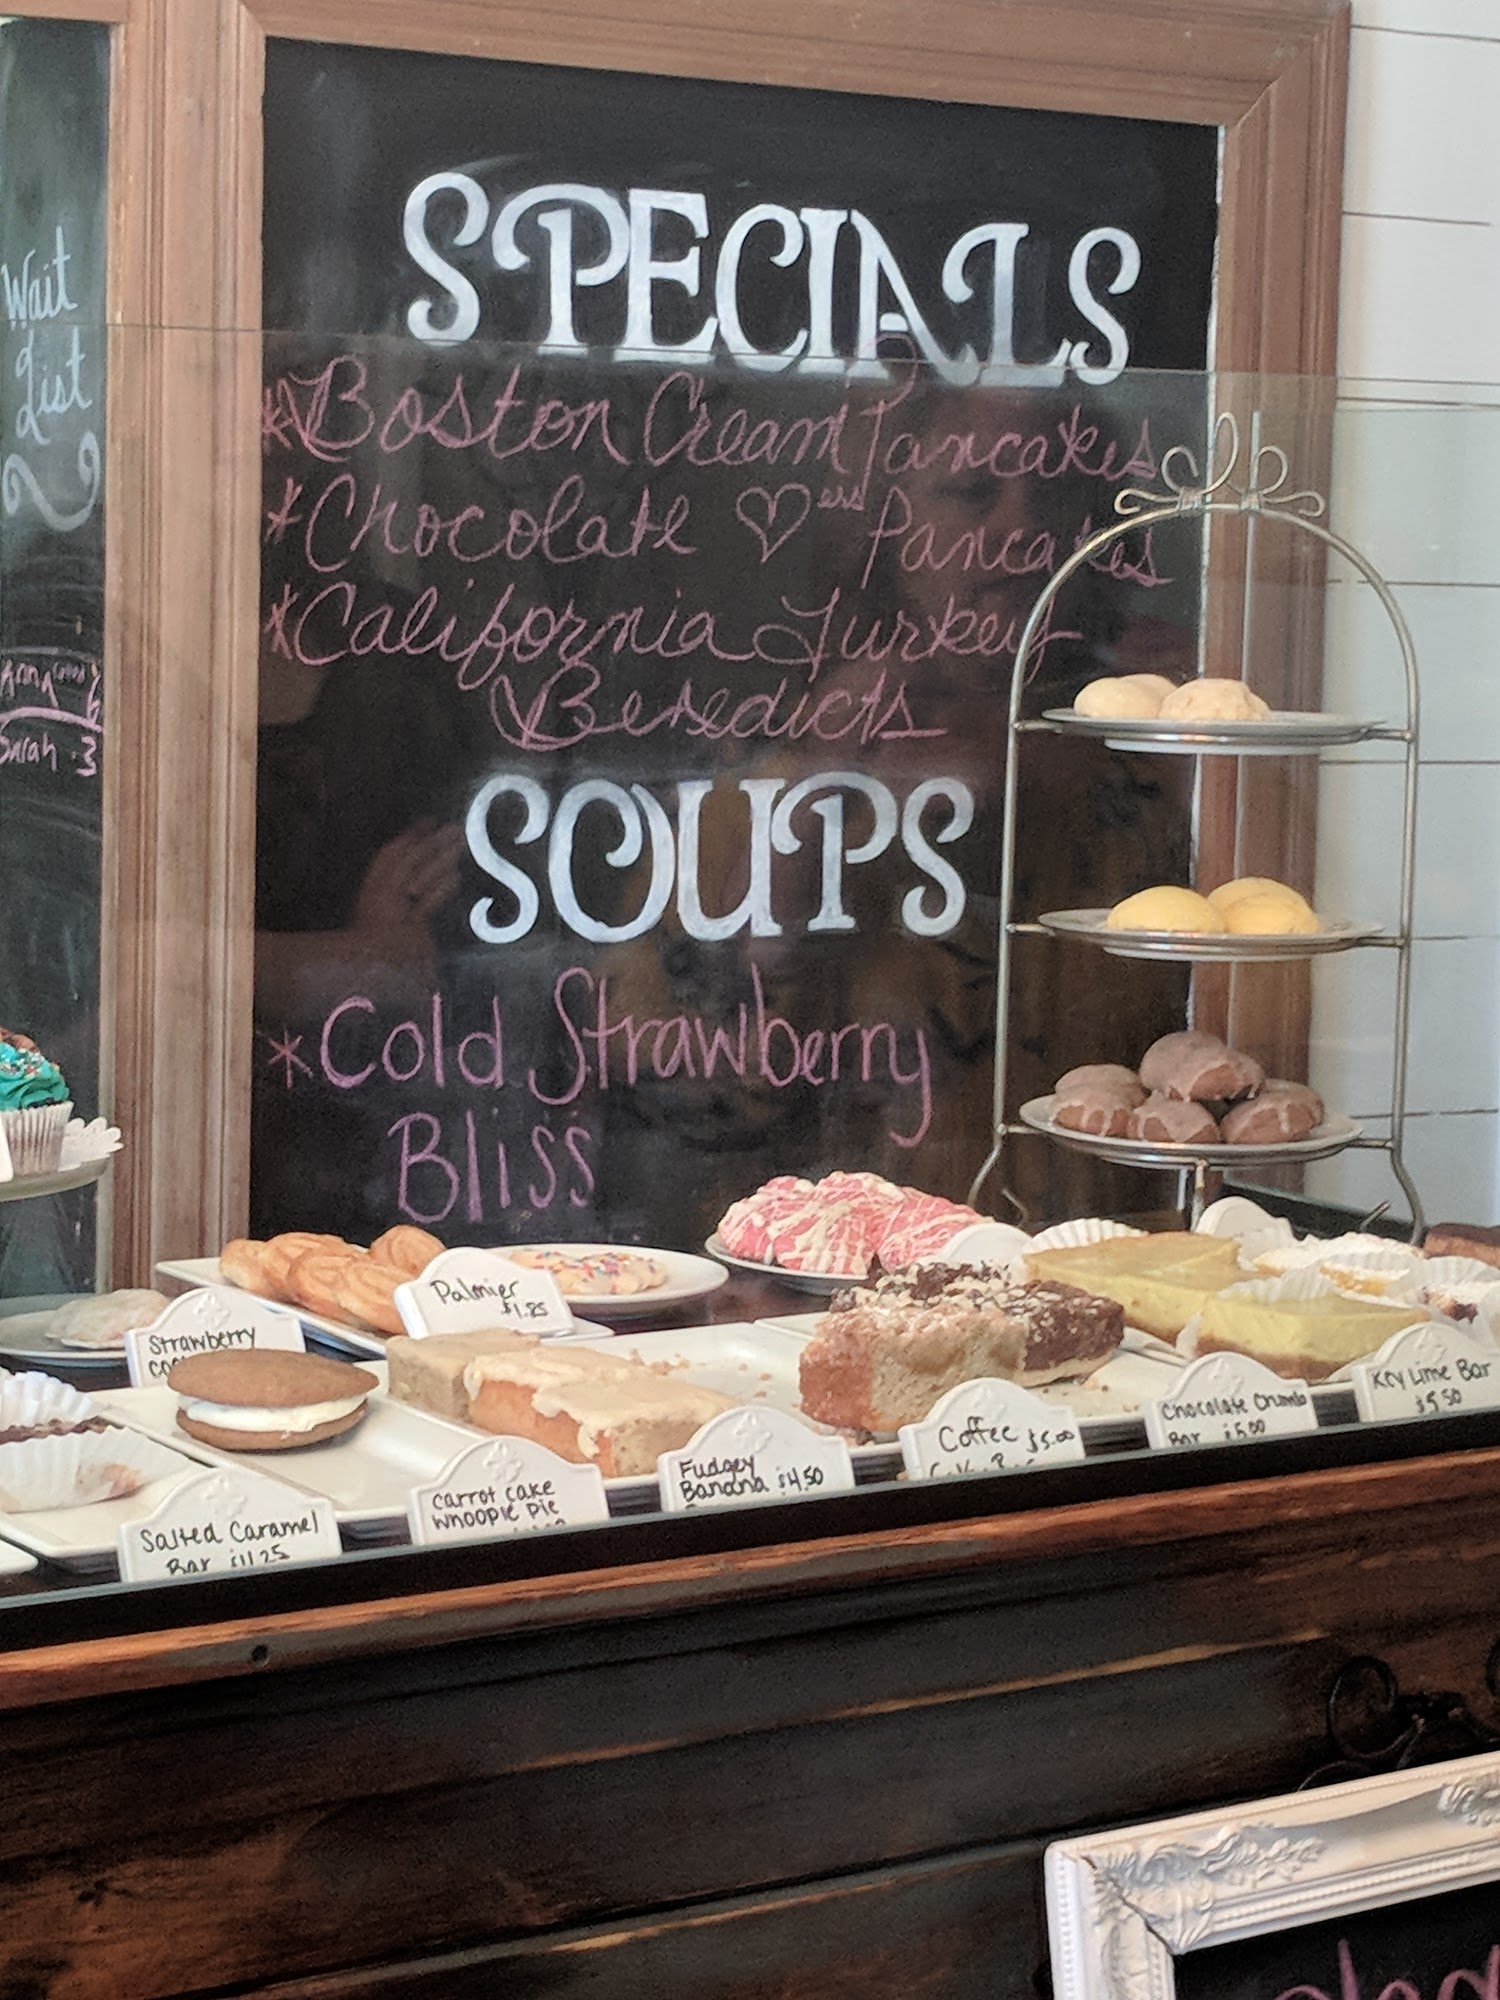 Wait
List
Anna
Sarah 3
SPECIALS
*Boston Cream Pancakes
*Chocolate ♡ers Pancakes
*California Turkey
Benedicts
SOUPS
*Cold Strawberry
Bliss
Palmier
$1.25
Strawberry
Salted Caramel
Bar
Carrot Cake
Whoopie Pie
Fudgey
Banana $4.50
Coffee $5.00
Chocolate Crumb
Bar $5.00
Key Lime Bar
$5.50